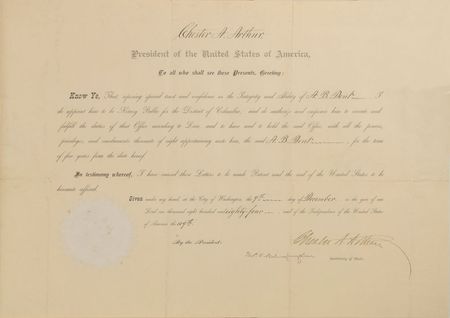 Chester A. Arthur.
President of the United States of America,
To all who shall see these Presents, Greeting:
Know Ye, That, reposing special trust and confidence in the Integrity and Ability of A. B. Dent I
do appoint him to be Notary Public for the District of Columbia, and do authorize and empower him to execute and
fulfill the duties of that Office according to Law and to have and to hold the said Office, with all the powers,
privileges, and emoluments thereunto of right appertaining unto him, the said A. B. Dent, for the term
of five years from the date hereof.
In testimony whereof, I have caused these Letters to be made Patent and the seal of the United States to
be hereunto affixed.
Given under my hand, at the City of Washington, the 9th day of December, in the year of our
Lord one thousand eight hundred and eighty-four, and of the Independence of the United States
of America the 109th.
By the President:
Chester A. Arthur
Secretary of State.